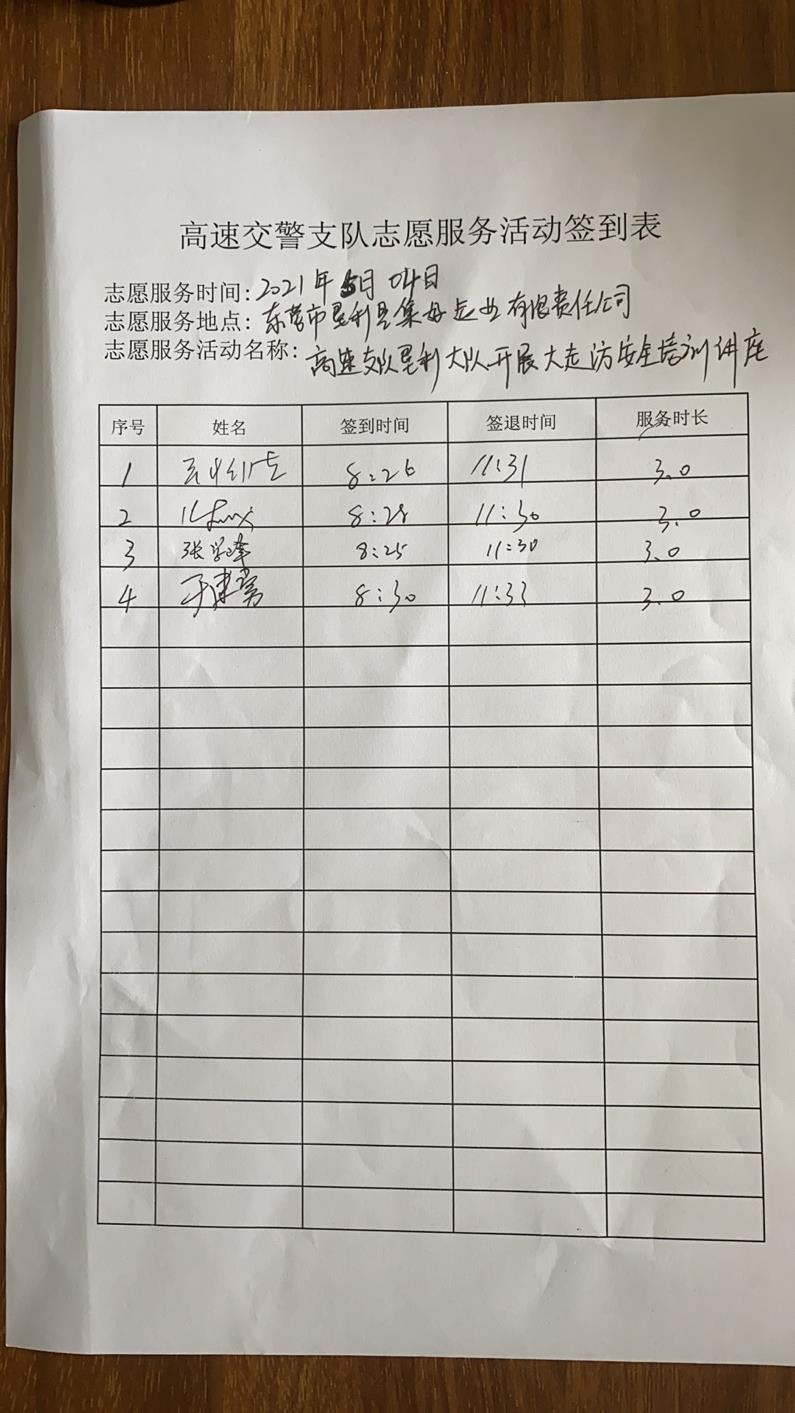 高速交警支队志愿服务活动签到表
志愿服务时间:2021年5月04日
志愿服务地点:东营市垦利县集 运业有限责任公司
志愿服务活动名称:高速支队垦利大队开展大走访安全培训讲座
序号 姓名 签到时间 签退时间 服务时长
1 8:26 11:31 3.0
2 8:28 11:30 3.0
3 张学峰 8:25 11:30 3.0
4 8:30 11:33 3.0